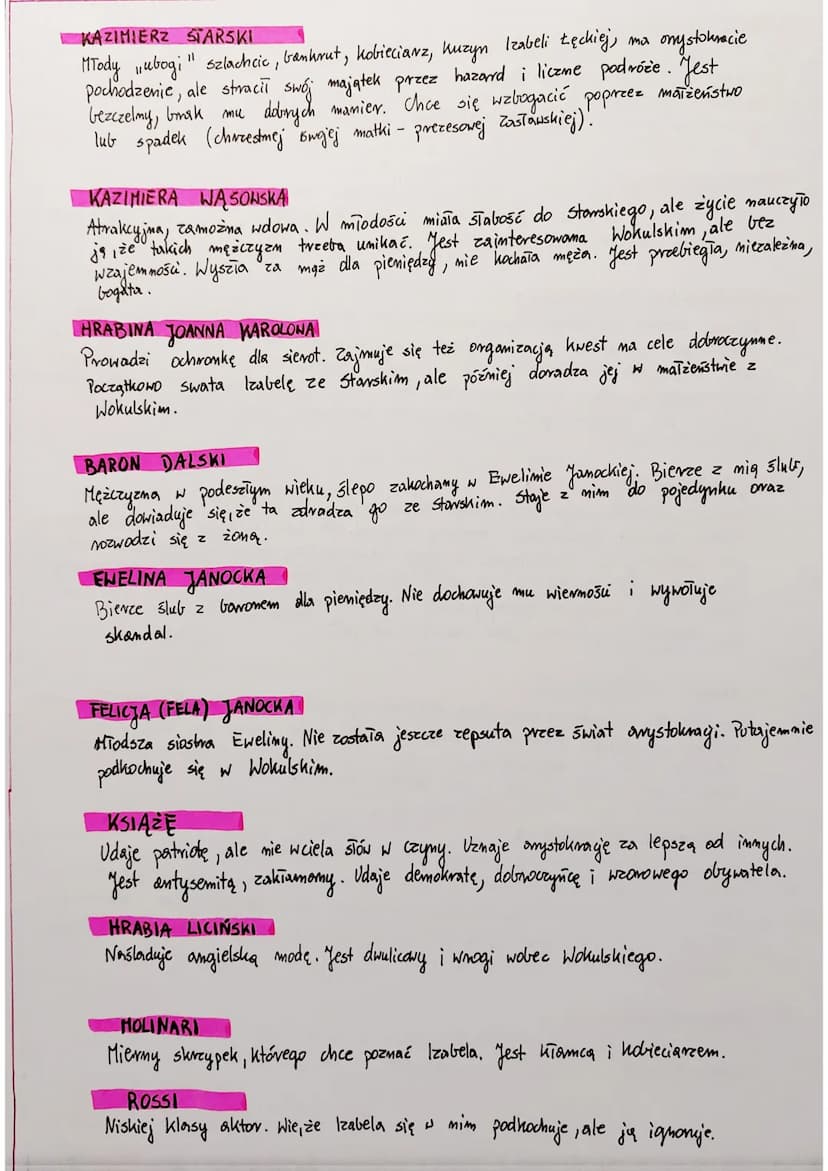 KAZIMIERZ STARSKI
Młody „ubogi" szlachcic, bankrut, kobieciarz, kuzyn Izabeli Łęckiej, ma arystokracie
pochodzenie, ale stracił swój majątek przez hazard i liczne podróże. Jest
bezczelny, brak mu dobrych manier. Chce się wzbogacić poprzez małżeństwo
lub spadek (chrzestnej swojej matki - prezesowej Zasławskiej).
KAZIMIERA WĄSOWSKA
Atrakcyjna, zamożna wdowa. W młodości miała słabość do Starskiego, ale życie nauczyło
ją, że takich mężczyzn trzeba unikać. Jest zainteresowana Wokulskim, ale bez
wzajemności. Wyszła za mąż dla pieniędzy, nie kochała męża. Jest przebiegła, niezależna,
bogata.
HRABINA JOANNA KAROLOWA
Prowadzi ochronkę dla sierot. Zajmuje się też organizacją kwest na cele dobroczynne.
Początkowo swata Izabelę ze Starskim, ale później doradza jej w małżeństwie z
Wokulskim.
BARON DALSKI
Mężczyzna w podeszłym wieku, ślepo zakochany w Ewelinie Janockiej. Bierze z nią ślub,
ale dowiaduje się, że ta zdradza go ze Starskim. Staje z nim do pojedynku oraz
rozwodzi się z żoną.
EWELINA JANOCKA
Bierze ślub z baronem dla pieniędzy. Nie dochowuje mu wierności i wywołuje
skandal.
FELICJA (FELA) JANOCKA
Młodsza siostra Eweliny. Nie została jeszcze zepsuta przez świat arystokracji. Potajemnie
podkochuje się w Wokulskim.
KSIĄŻĘ
Udaje patriotę, ale nie wciela słów w czyny. Uznaje arystokrację za lepszą od innych.
Jest antysemitą, zakłamany. Udaje demokratę, dobroczyńcę i wzorowego obywatela.
HRABIA LICIŃSKI
Naśladuje angielską modę. Jest dwulicowy i wrogi wobec Wokulskiego.
MOLINARI
Mierny skrzypek, którego chce poznać Izabela. Jest kłamcą i kobieciarzem.
ROSSI
Niskiej klasy aktor. Wie, że Izabela się w nim podkochuje, ale ją ignoruje.